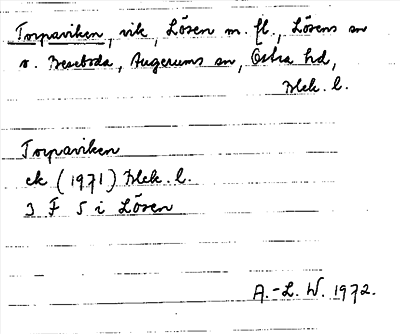 Torpaviken, vik, Lösen m. fl., Lösens sn
o. Beseboda, Augerums sn, Östra hd,
Blek. l.
Torpaviken
ek (1971) Blek. l.
3 F 5 i Lösen
A.-L. W. 1972.